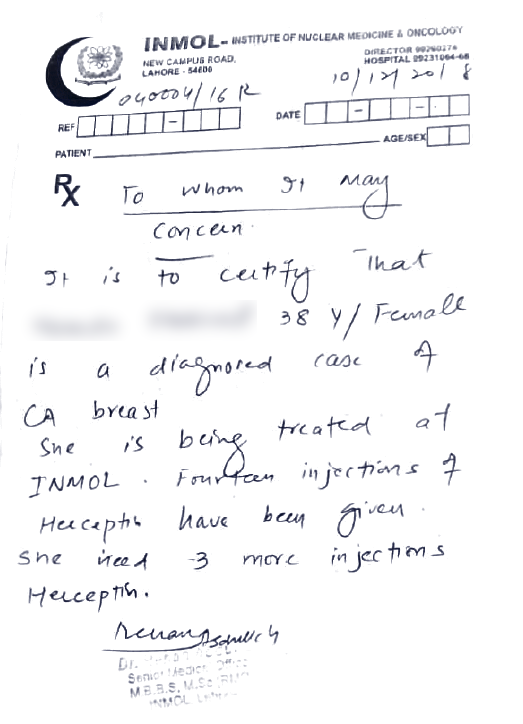 INMOL- INSTITUTE OF NUCLEAR MEDICINE & ONCOLOGY
NEW CAMPUS ROAD,
LAHORE - 54600
DIRECTOR 99260274
HOSPITAL 99231064-66
10/12/2018
040004/16 R
REF
DATE
AGE/SEX
PATIENT
Rx
To whom It May
Concern.
It is to certify That
38 Y/ Female
is a diagnosed case of
CA breast
She is being treated at
INMOL. Fourteen injections of
Herceptin have been given.
She need 3 more injections
Herceptin.
Dr.
Senior Medical Officer
M.B.B.S, M.Sc
INMOL